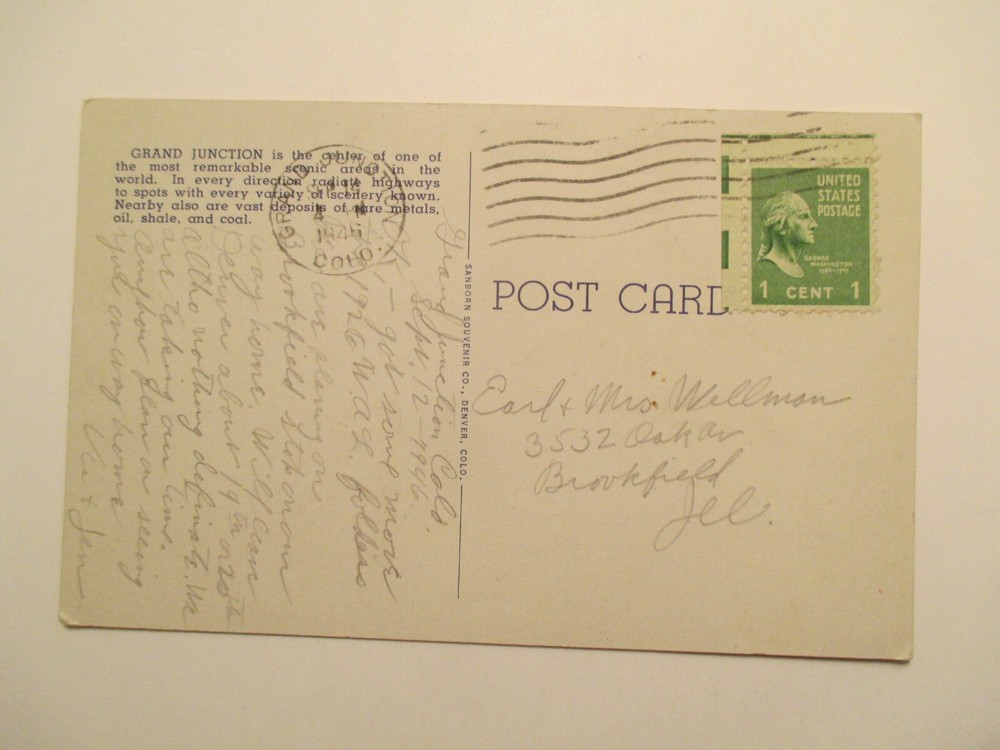 GRAND JUNCTION is the center of one of
the most remarkable scenic areas in the
world. In every direction radiate highways
to spots with every variety of scenery known.
Nearby also are vast deposits of rare metals,
oil, shale, and coal.
Grand Junction Colo.
Sept, 12-1946
got some more
1926 W.A.L. folders
are planing on
Brookfield stop on our
way home. Will leave
Denver about 19th or 20th
altho nothing definate. We
are taking our time.
Anyhow plan on seeing
you on way home
Vi + Jen
SANBORN SOUVENIR CO., DENVER, COLO.
GRAND JUNCTION
COLO.
UNITED
STATES
POSTAGE
GEORGE
WASHINGTON
1 CENT 1
POST CARD
Earl + Mrs. Wellman
3532 Oak Av
Brookfield
Ill.